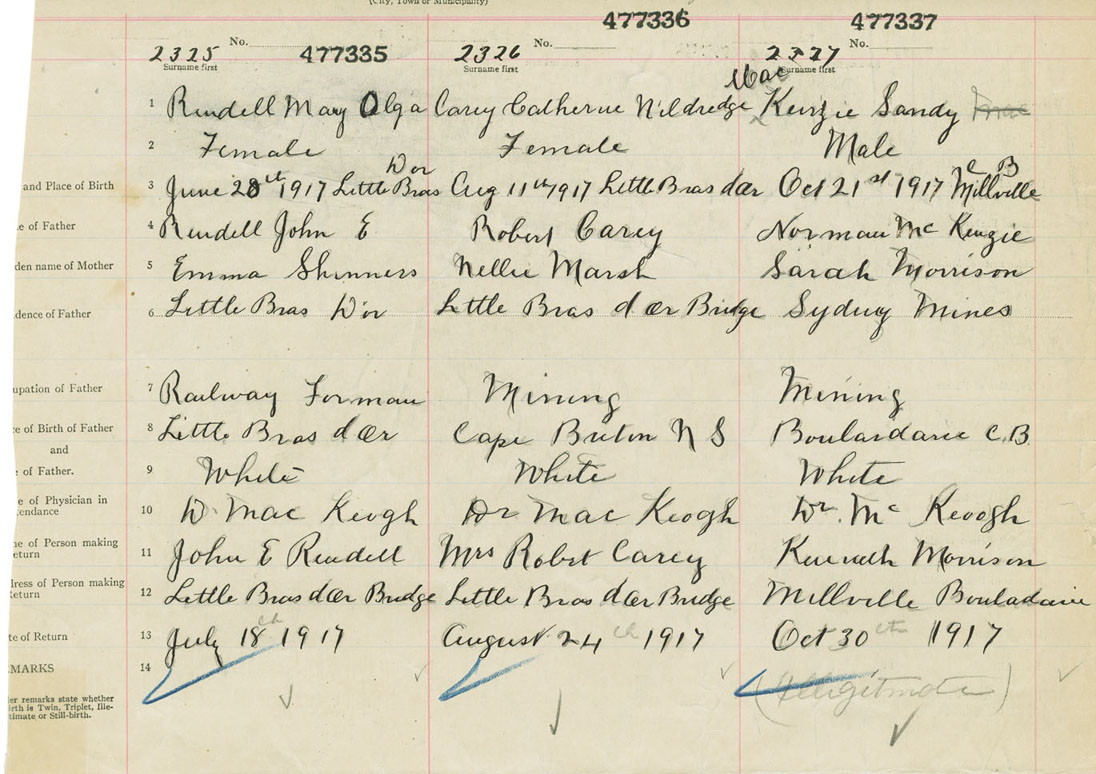 (City, Town or Municipality)
No. 477335 477336 No. 477337 No.
2325 2326 2327
Surname first Surname first Surname first
Mac
1 Rendell May Olga Carey Catherine Mildredge Kenzie Sandy
2 Female Female Male
Dor C B
and Place of Birth 3 June 28 1917 Little Bras Aug 11th 1917 Little Bras dor Oct 21st 1917 Millville
e of Father 4 Rendell John E Robert Carey Norman Mc Kenzie
den name of Mother 5 Emma Skinners Nellie Marsh Sarah Morrison
dence of Father 6 Little Bras D'or Little Bras d Or Bridge Sydney Mines
upation of Father 7 Railway Forman Mining Mining
e of Birth of Father 8 Little Bras d Or Cape Breton N S Boulardarie C.B.
and
e of Father. 9 White White White
e of Physician in
tendance 10 D. Mac Keogh Dr Mac Keogh Dr. Mc Keoogh
ne of Person making
eturn 11 John E Rendell Mrs Robert Carey Kenneth Morrison
dress of Person making
Return 12 Little Bras d Or Bridge Little Bras d Or Bridge Millville Bouladarie
te of Return 13 July 18th 1917 August 24th 1917 Oct 30 1917
MARKS 14
(Illigitmate)
der remarks state whether
irth is Twin, Triplet, Ille-
timate or Still-birth.